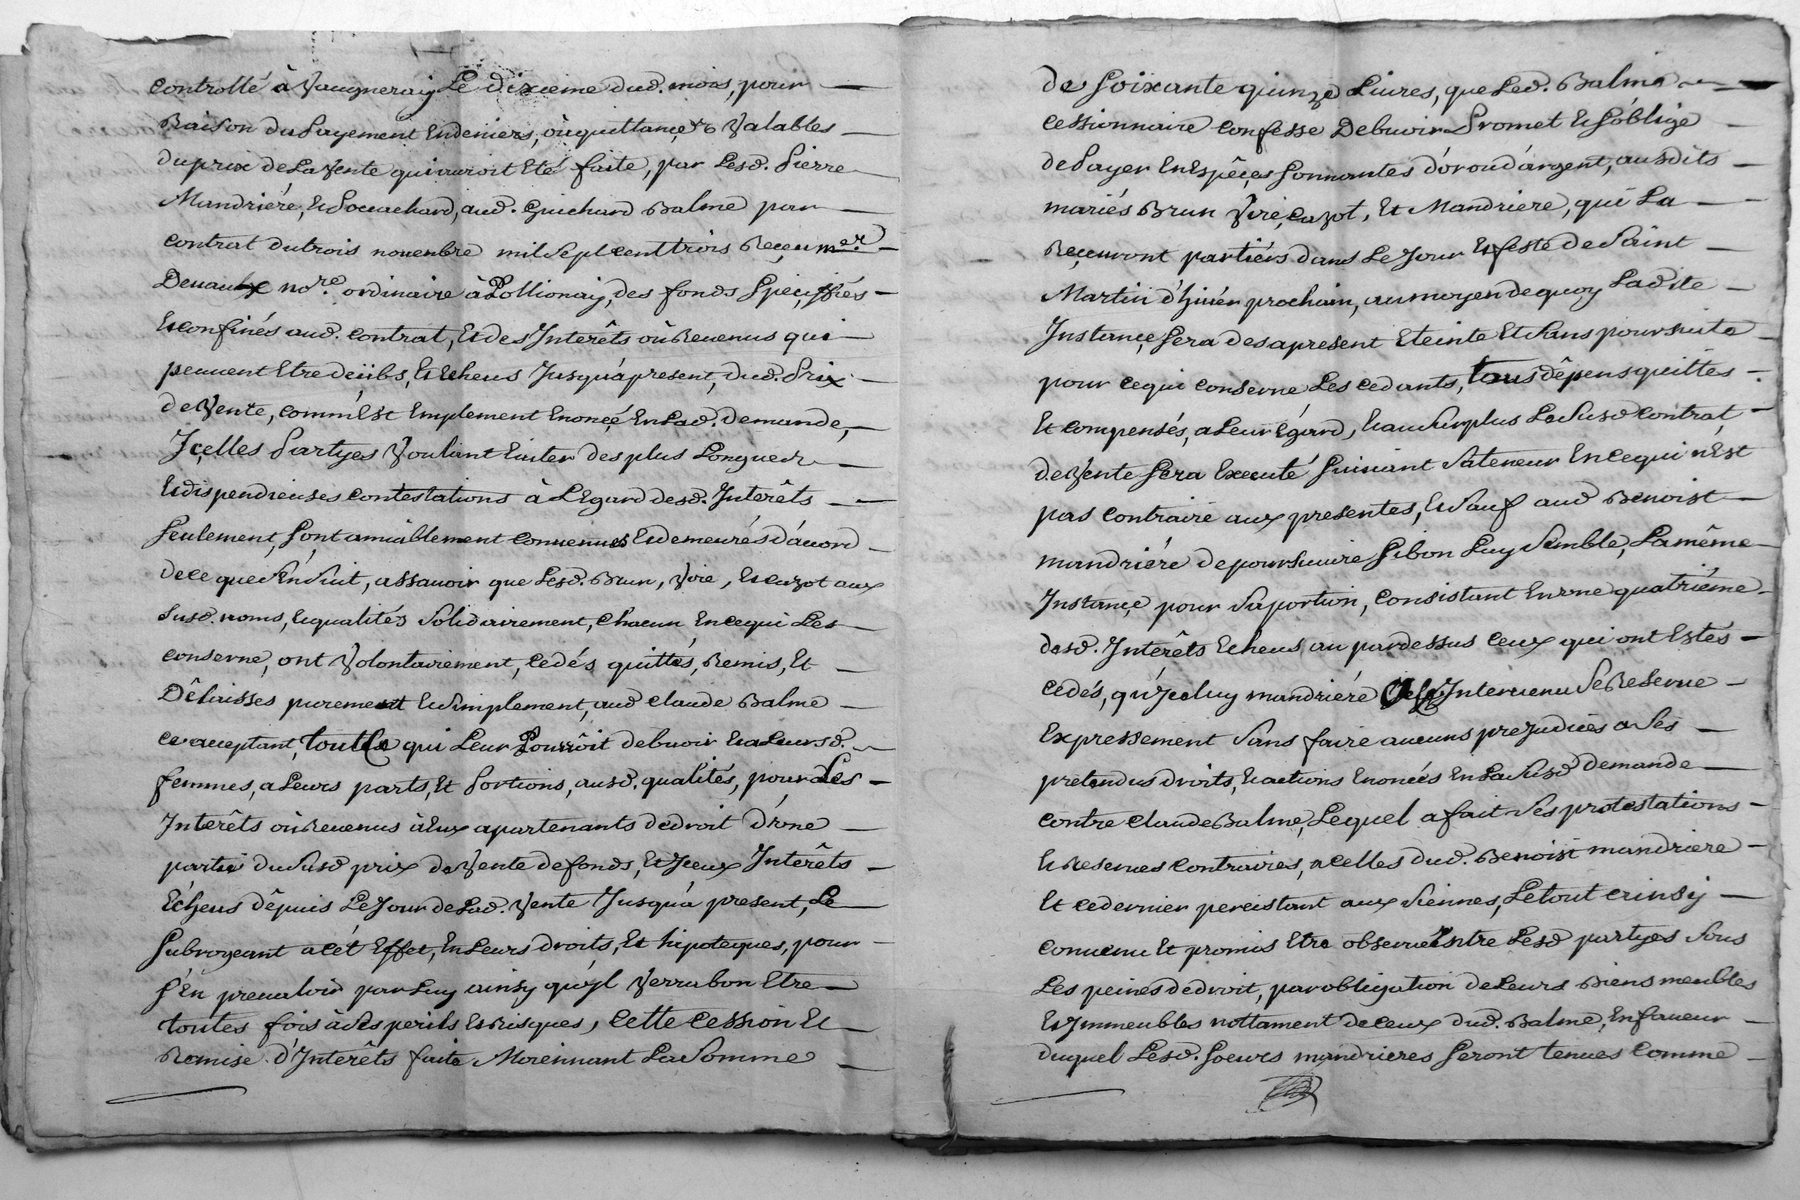 controllé à Vaugneray Le dixieme dud. mois, pour
Raison du payement En deniers, où quittances Valables
du prix de La Vente qui auroit Eté faite, par Lesd. Pierre
Mandriére, Et Pocuachard, aud. Guichard Balme par
contrat du trois novembre mil Sept cent trois Reçeu me.
Devaulx nore. ordinaire à Pollionay, des fonds Speciffiés
Et confinés aud. contrat, Et des Interêts où Revenus qui
peuvent Etre deübs, Et Echeus Jusqu'à present, dud. Prix
de Vente, comm'Est Emplement Enonçé En Lad. Demande,
Içelles Partyes Voulant Eviter des plus Longues
Et dispendieuses contestations à L'Egard desd. Interêts
Seulement, Sont amiablement convenues Et demeurés d'acord
de ce que S'En Suit, assavoir que Lesd. Brun, Vvie, Et cazot aux
Susd. noms, Et qualités Solidairement, Chacun En cequi Les
conserne, ont Volontairement, cedés quittés, Remis, Et
Dêlaisses purement Et Simplement, aud Claude Balme
ce aceptant, tout Ce qui Leur Pourrôit debvoir Et a Leursd.
femmes, a Leurs parts, Et Portions, ausd. qualités, pour Les
Interêts où Revenus à Eux apartenants de droit d'vne
partie du Susd prix de Vente de fonds, Et Jceux Interêts
Echeus dêpuis Le Jour de Lad. Vente Jusqu'à present, Le
Subrogeant a cét Effet, En Leurs droits, Et hipoteques, pour
S'En prevaloir par Luy ainsy qu'yl Verra bon Etre
toutes fois à Ses perils Et Risques, Cette Cession Et
Remise d'Interêts faite Moiennant La Somme
de Soixante quinze Livres, que Led. Balme
cessionnaire confesse Debvoir Promet Et S'oblige
de Payer En Espêçes Sonnantes d'or ou d'argent, ausdits
mariés Brun Vvie, Cazot, Et Mandriere, qui La
Reçevront partiers dans Le Jour Et feste de Saint
Martin d'hiver prochain, au moyen dequoy Ladite
Instançe Sera des apresent Eteinte Et Sans poursuite
pour cequi conserne Les cedants, tous dêpens quittés
Et compensés, a Leur Egard, Et au Surplus Le Susd contrat
de Vente Sera Executé Suivant Sa teneur En cequi n'Est
pas contraire aux presentes, Et Sauf aud Benoist
mandriére de poursuivre Si bon Luy Semble, La même
Instançe pour Sa portion, Consistant En vne quatriéme
desd. Interêts Echeus au pardessus ceux qui ont Estés
cedés, qu'Jceluy mandriére Intervenu Se Reserve
Expressement Sans faire aucuns prejudices a Ses
pretendus droits, Et actions Enoncés En La Susd Demande
contre Claude Balme, Lequel a fait Ses protestations
Et Reserves contraires, a celles dud. Benoist mandriere
Et ce dernier percistant aux Siennes, Le tout ainsy
convenu Et promis Etre observé Entre Lesd partyes Sous
Les peines de droit, par obligation de Leurs Biens meubles
Et Jmmeubles nottament de Ceux dud. Balme, En faveur
duquel Lesd. Soeurs mandrieres Seront tenues Comme